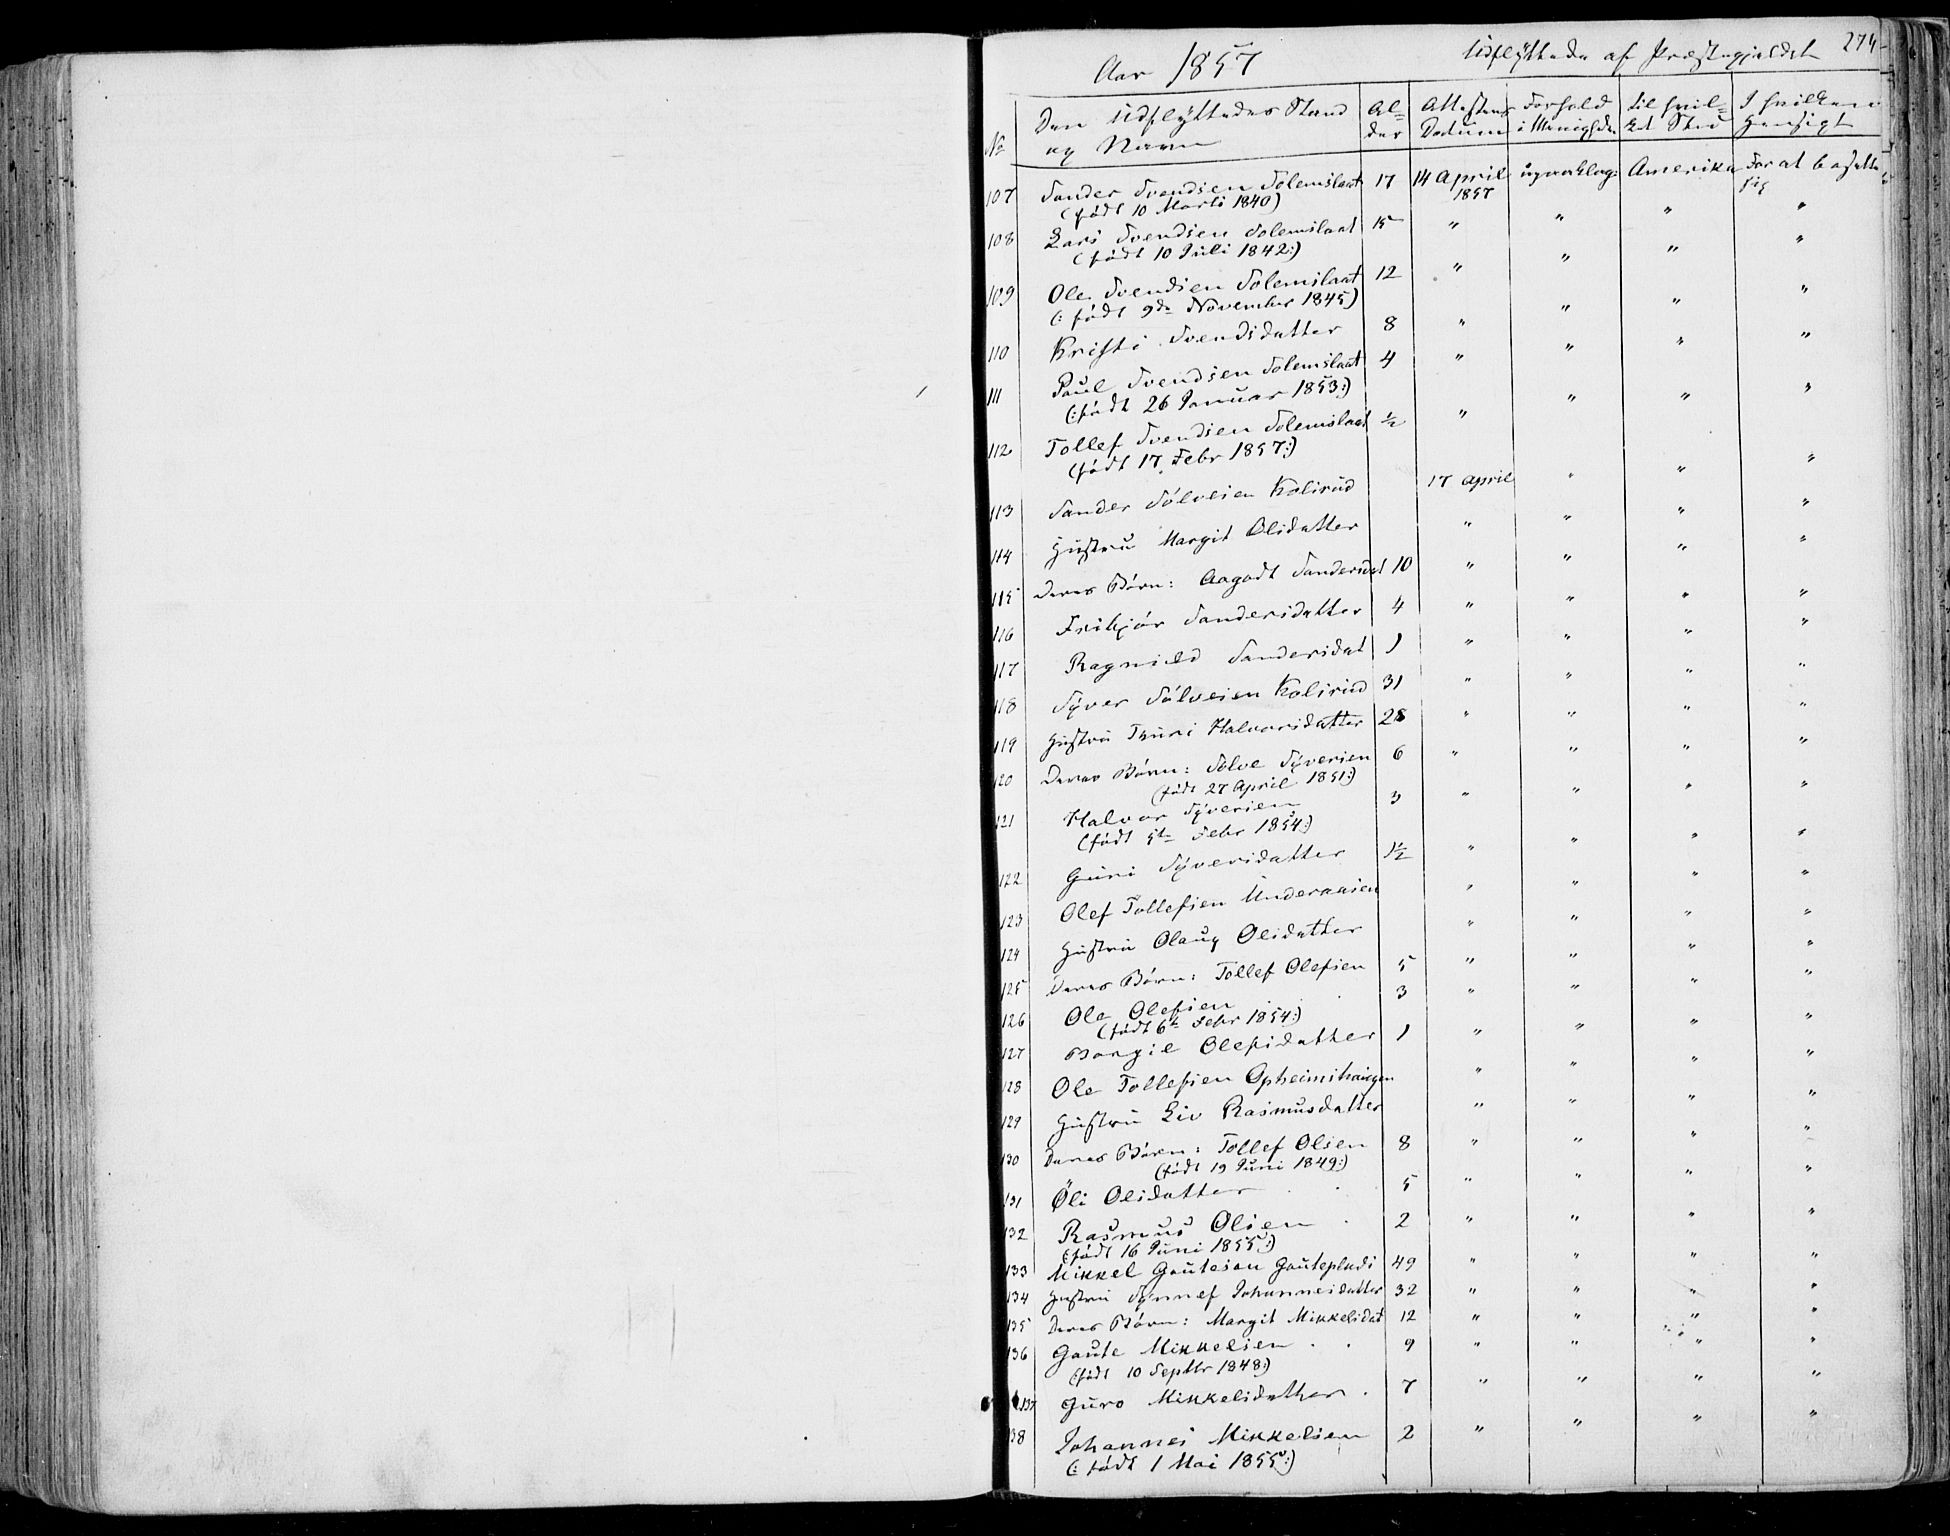 Aar 1857 Udflyttede af Præstegjeldet 274
No Den Udflyttedes Stand og Navn Alder Attestens Datum Forhold i Menigheden til hvilket Sted I hvilken Hensigt
107 Sander Svendsen Solemslaat 17 14 April 1857 Amerika For at bosætte sig
(født 10 Marts 1840)
108 Lars Svendsen Solemslaat 15 " " " "
(født 10 Juli 1842:)
109 Ole Svendsen Solemslaat 12 " " " "
(: født 9de November 1845)
110 Kristi Svendsdatter 8 " " " "
111 Paul Svendsen Solemslaat 4 " " " "
(:født 26 Januar 1853:)
112 Tollef Svendsen Solemslaat ½ " " " "
(født 17 Febr 1857:)
113 Sander Sølvesen Kolsrud 17 April " " "
114 Hustru Margit Olsdatter " " " "
115 Deres Børn: Aagodt Sandersdat 10 " " " "
116 Sandersdatter 4 " " " "
117 Ragnild Sandersdat 1 " " " "
118 Syver Sølvesen Kolsrud 31 " " " "
119 Hustru Thuri Halvorsdatter 28 " " " "
120 Deres Børn: Sølve Syversen 6 " " " "
(født 27 April 1851:)
121 Halvor Syversen 3 " " " "
(født 5te Febr 1854:)
122 Guri Syversdatter 1½ " " " "
123 Olef Tollefsen Underaasen " " " "
124 Hustru Olaug Olsdatter " " " "
125 Deres Børn: Tollef Olefsen 5 " " " "
126 Ole Olefsen 3 " " " "
(født 6te Febr 1854:)
127 Bargil Olefsdatter 1 " " " "
128 Ole Tollefsen Opheimshaugen " " " "
129 Hustru Liv Rasmusdatter " " " "
130 Deres Børn: Tollef Olsen 8 " " " "
(født 19 Juni 1849:)
131 Øli Olsdatter 5 " " " "
132 Rasmus Olsen 2 " " " "
(:født 16 Juni 1855:)
133 Mikkel Goutesen Gouteplads 49 " " " "
134 Hustru Synnef Johannesdatter 32 " " " "
135 Deres Børn: Margit Mikkelsdat 12 " " " "
136 Goute Mikkelsen 9 " " " "
(født 10 Septbr 1848:)
137 Guro Mikkelsdatter 7 " " " "
38 Johannes Mikkelsen 2 " " " "
(: født 1 Mai 1855:)